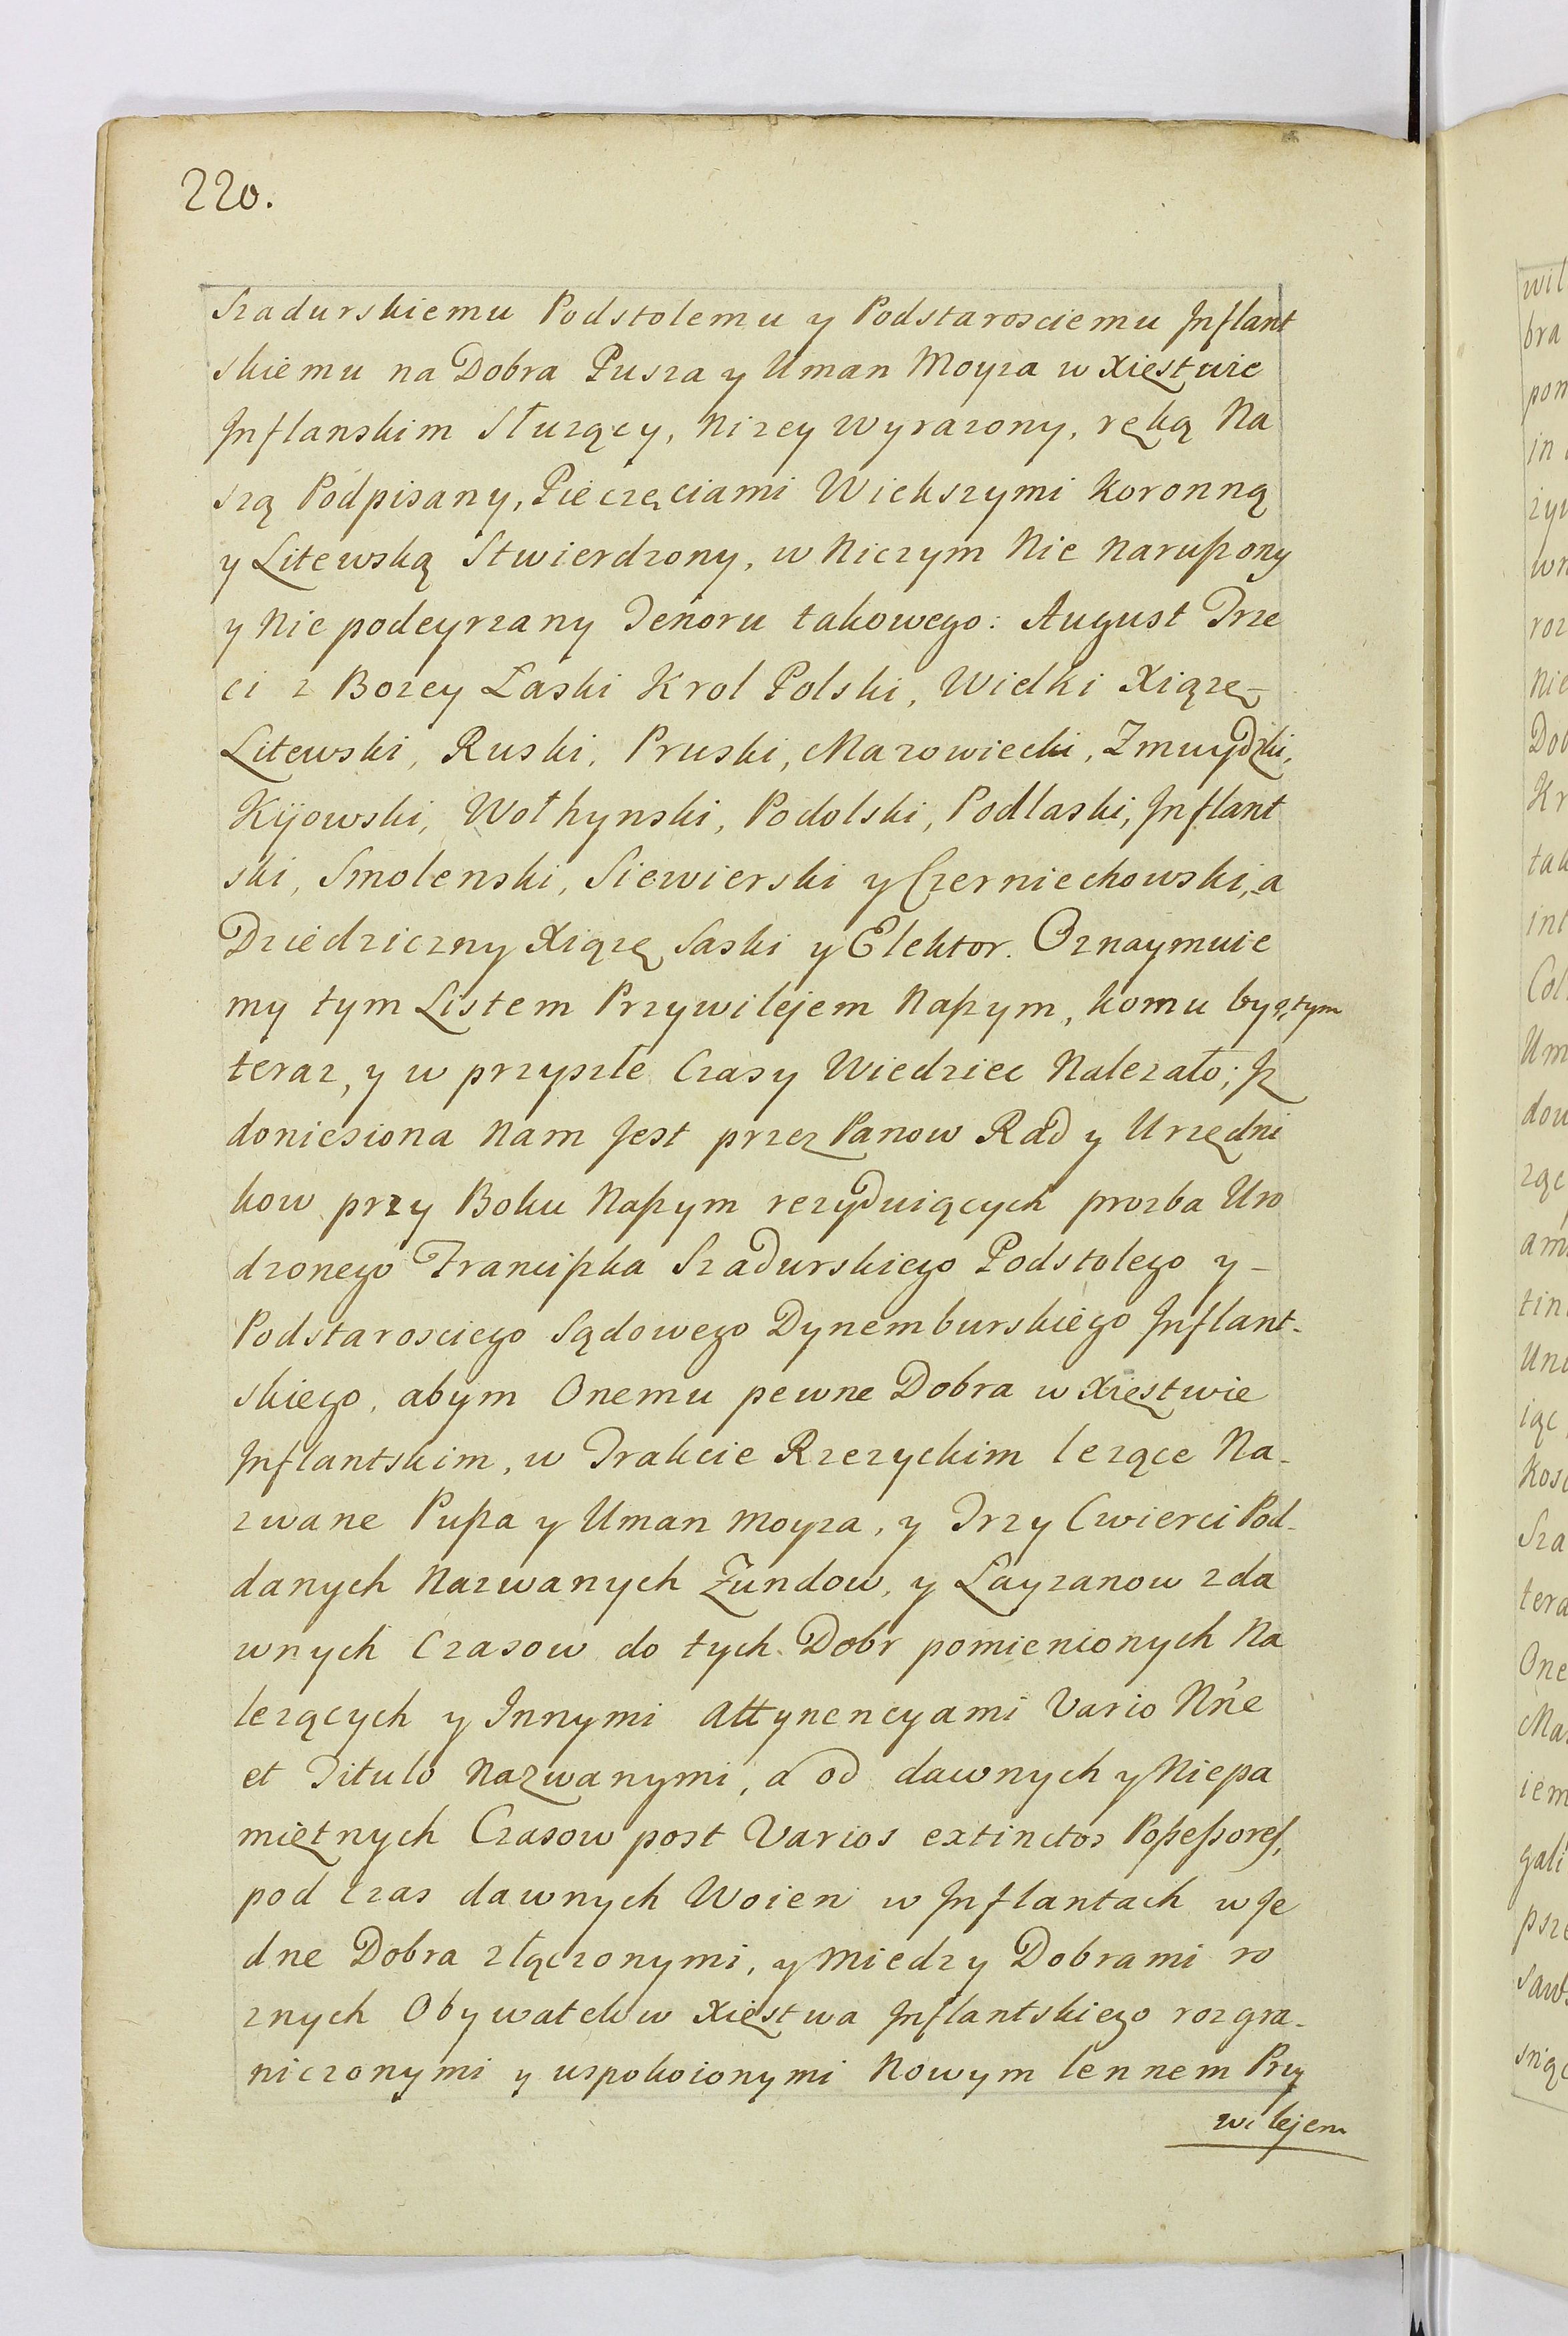 220.
Szadurskiemu Podstolemu y Podstarosciemu Jnflant
skiemu na Dobra Pusza y Uman Moyza w Xięstwie
Jnflanskim Służący, Niżey wyrażony, ręką Na
szą Podpisany, Pieczęciami Wiekszymi Koronną
y Litewską Stwierdzony, w Niczym Nie Naruszony
y Nie podeyrzany Tenoru takowego: August Trze
ci z Bożey Łaski Krol Polski, Wielki Xiąże-
Litewski, Ruski, Pruski, Mazowiecki, Zmuydzki,
Kijowski, Wołhynski, Podolski, Podlaski, Jnflant
ski, Smolenski, Siewierski y Czerniechowski, a
Dziedziczny Xiąże Saski y Elektor. Oznaymuie
my tym Listem Przywilejem Naszym, komu by o tym
teraz, y w przyszłe Czasy Wiedziec Nalezało; Jz
doniesiona Nam Jest przez Panow Rad y Urzędni
kow przy Boku Naszym rezyduiących prozba Uro
dzonego Franciszka Szadurskiego Podstolego y-
Podstarosciego Sądowego Dynemburskiego Jnflant-
skiego, abym Onemu pewne Dobra w Xięstwie
Jnflantskim, w Trakcie Rzezyckim leżące Na-
zwane Pusza y Uman Moyza, y Trzy Cwierci Pod-
danych Nazwanych Zundow, y Łayzanow zda
wnych Czasow do tych Dobr pomienionych Na
leżących y Innymi attynencyami Vario Nn̄e
et Titulo Nazwanymi, a od dawnych y Niepa
miętnych Czasow post Varios extinctos Possessores,
pod czas dawnych Woien w Jnflantach w Je
dne Dobra złączonymi, y miedzy Dobrami ro
znych Obywatelow Xięstwa Jnflantskiego rozgra-
niczonymi y uspokoionymi Nowym lennem Przy
wilejem